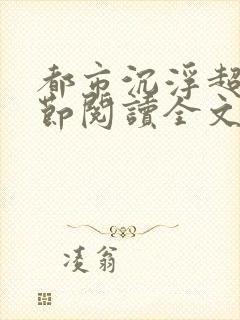 都市沉浮超
節閱讀全文
凌翁